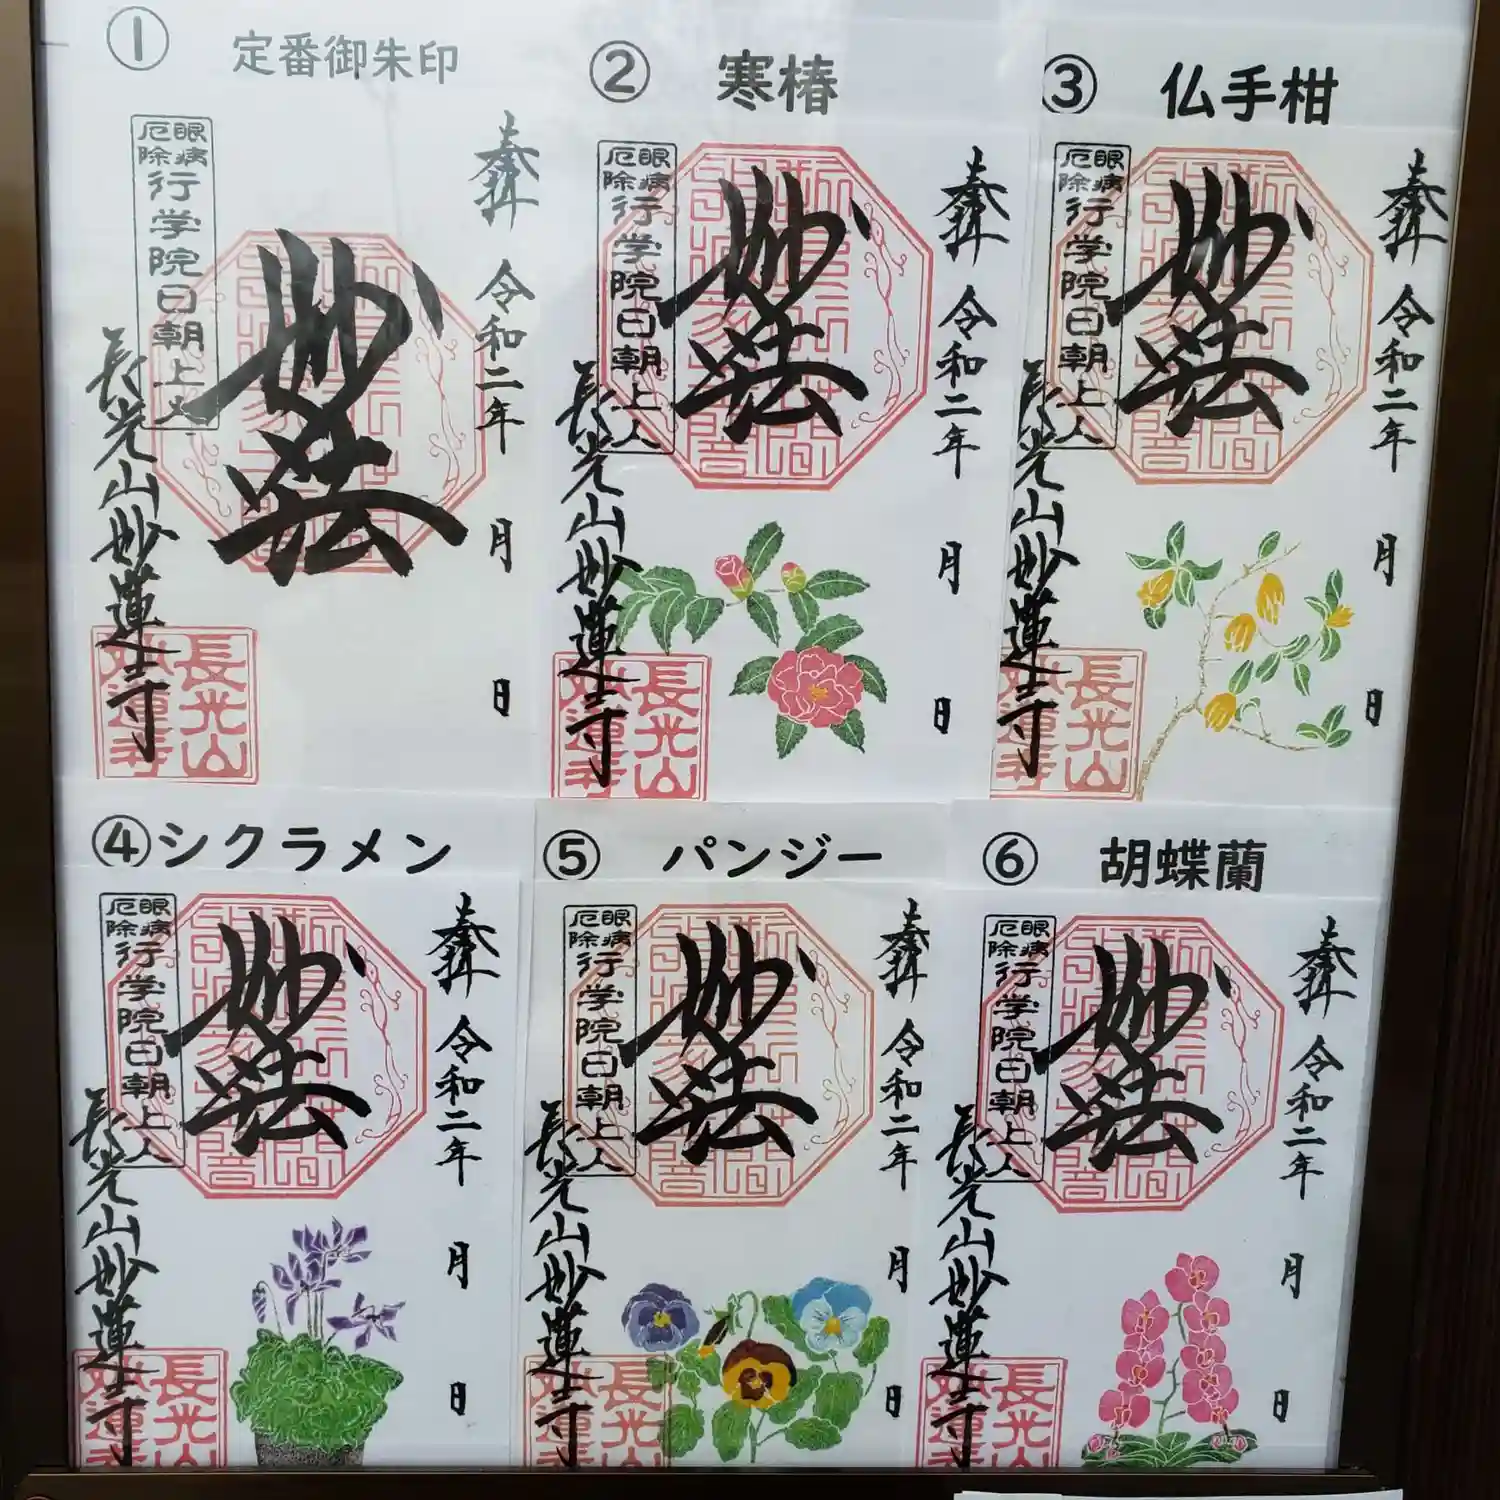 ① 定番御朱印
奉拝
令和二年
月
日
妙法
眼病
厄除
行学院日朝上人
長光山妙蓮寺
長光山
妙蓮寺
② 寒椿
奉拝
令和二年
月
日
妙法
眼病
厄除
行学院日朝上人
長光山妙蓮寺
長光山
妙蓮寺
③ 仏手柑
奉拝
令和二年
月
日
妙法
眼病
厄除
行学院日朝上人
長光山妙蓮寺
長光山
妙蓮寺
④シクラメン
奉拝
令和二年
月
日
妙法
眼病
厄除
行学院日朝上人
長光山妙蓮寺
長光山
妙蓮寺
⑤ パンジー
奉拝
令和二年
月
日
妙法
眼病
厄除
行学院日朝上人
長光山妙蓮寺
長光山
妙蓮寺
⑥ 胡蝶蘭
奉拝
令和二年
月
日
妙法
眼病
厄除
行学院日朝上人
長光山妙蓮寺
長光山
妙蓮寺